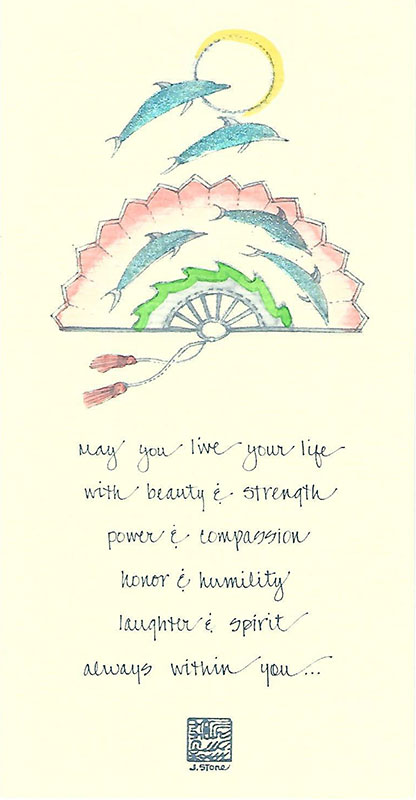 May you live your life
with beauty & strength
power & compassion
honor & humility
laughter & spirit
always within you...
J. STONE